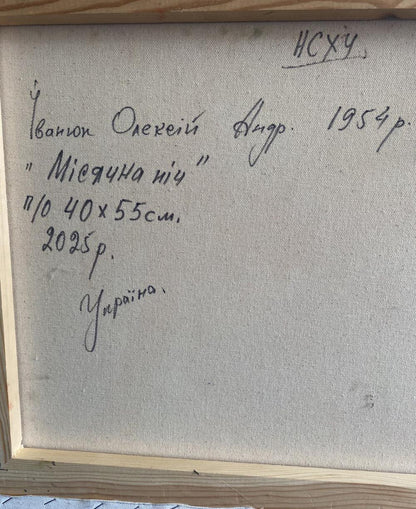 НСХУ
Іванюк Олексій Андр. 1954р.
"Місячна ніч"
п/о 40х55см.
2025р.
Україна.